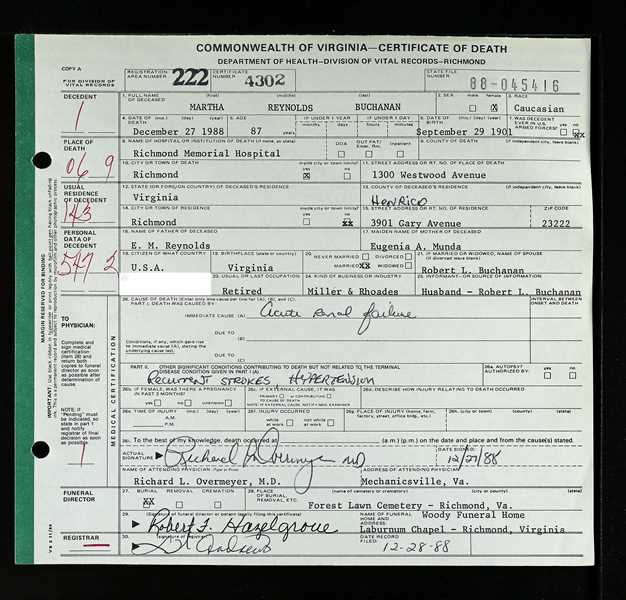 COMMONWEALTH OF VIRGINIA—CERTIFICATE OF DEATH
DEPARTMENT OF HEALTH—DIVISION OF VITAL RECORDS—RICHMOND
COPY A
FOR DIVISION OF VITAL RECORDS
REGISTRATION AREA NUMBER 222 CERTIFICATE NUMBER 4302 STATE FILE NUMBER 88-045416
DECEDENT
1. FULL NAME OF DECEASED (first) (middle) (last) 2. SEX male female 3. RACE
MARTHA REYNOLDS BUCHANAN X Caucasian
1
4. DATE OF DEATH (mo.) (day) (year) 5. AGE IF UNDER 1 YEAR IF UNDER 1 DAY 6. DATE OF BIRTH (mo.) (day) (year) 7. WAS DECEDENT EVER IN U.S. ARMED FORCES? yes no
months days hours minutes
December 27 1988 87 years September 29 1901 xx
PLACE OF DEATH
8. NAME OF HOSPITAL OR INSTITUTION OF DEATH (if none, so state) DOA OUT PAT/ Emer. Rm. Inpatient 9. COUNTY OF DEATH (if independent city, leave blank)
Richmond Memorial Hospital
06 9
10. CITY OR TOWN OF DEATH inside city or town limits? yes no 11. STREET ADDRESS OR RT. NO. OF PLACE OF DEATH
Richmond X 1300 Westwood Avenue
USUAL RESIDENCE OF DECEDENT
12. STATE (OR FOREIGN COUNTRY) OF DECEASED'S RESIDENCE 13. COUNTY OF DECEASED'S RESIDENCE (if independent city, leave blank)
Virginia HENRICO
143
14. CITY OR TOWN OF RESIDENCE inside city or town limits? yes no 15. STREET ADDRESS OR RT. NO. OF RESIDENCE ZIP CODE
Richmond xx 3901 Gary Avenue 23222
PERSONAL DATA OF DECEDENT
16. NAME OF FATHER OF DECEASED 17. MAIDEN NAME OF MOTHER OF DECEASED
E. M. Reynolds Eugenia A. Munda
18. CITIZEN OF WHAT COUNTRY 19. BIRTHPLACE (state or country) 20. NEVER MARRIED DIVORCED 21. IF MARRIED OR WIDOWED, NAME OF SPOUSE (if divorced leave blank)
MARRIED xx WIDOWED
U.S.A. Virginia Robert L. Buchanan
23. USUAL OR LAST OCCUPATION 24. KIND OF BUSINESS OR INDUSTRY 25. INFORMANT - OR SOURCE OF INFORMATION
Retired Miller & Rhoades Husband - Robert L. Buchanan
26. CAUSE OF DEATH (Enter only one cause per line for (A), (B), and (C). INTERVAL BETWEEN ONSET AND DEATH
PART I. DEATH WAS CAUSED BY:
IMMEDIATE CAUSE (A) Acute renal failure
DUE TO (B)
Conditions, if any, which gave rise to immediate cause (A), stating the underlying cause last.
DUE TO (C)
TO PHYSICIAN:
Complete and sign medical certification (item 26) and return both copies to funeral director as soon as possible after determination of cause.
MEDICAL CERTIFICATION
PART II. OTHER SIGNIFICANT CONDITIONS CONTRIBUTING TO DEATH BUT NOT RELATED TO THE TERMINAL DISEASE CONDITION GIVEN IN PART I (A) 26a. AUTOPSY AUTHORIZED BY: yes no
RECURRENT STROKES HYPERTENSION
26b. IF FEMALE, WAS THERE A PREGNANCY IN PAST 3 MONTHS? yes no unknown 26c. IF EXTERNAL CAUSE, IT WAS PRIMARY or CONTRIBUTING TO CAUSE OF DEATH 26d. DESCRIBE HOW INJURY RELATED TO DEATH OCCURRED
NOTE: IF EXTERNAL CAUSE, NOTIFY MEDICAL EXAMINER
NOTE: If "Pending" must be indicated, so state in part 1 and notify registrar of final decision as soon as possible.
26e. TIME OF INJURY (mo.) (day) (year) 26f. INJURY OCCURRED 26g. PLACE OF INJURY (home, farm, factory, street, office bldg., etc.) 26h. (city or town) (county) (state)
A.M. P.M. while at work not while at work
26i. To the best of my knowledge, death occurred at (a.m.) (p.m.) on the date and place and from the cause(s) stated.
ACTUAL SIGNATURE Richard L Overmeyer MD DATE SIGNED: 12/27/88
NAME OF ATTENDING PHYSICIAN (Type or Print) ADDRESS OF ATTENDING PHYSICIAN
Richard L. Overmeyer, M.D. Mechanicsville, Va.
FUNERAL DIRECTOR
27. BURIAL REMOVAL CREMATION 28. PLACE OF BURIAL, REMOVAL, ETC. (name of cemetery or crematory) (city or county) (state)
xx Forest Lawn Cemetery - Richmond, Va.
29. (Signature of funeral director or person legally filing this certificate) NAME OF FUNERAL HOME AND ADDRESS
Robert F. Hazelgrove Woody Funeral Home
Laburnum Chapel - Richmond, Virginia
REGISTRAR
30. (signature of registrar) DATE RECORD FILED:
12-28-88
MARGIN RESERVED FOR BINDING
VS 2 11/84